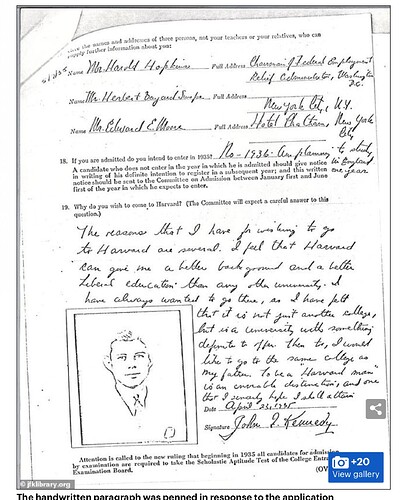 Give the names and addresses of three persons, not your teachers or your relatives, who can
supply further information about you:
Name Mr. Harold Hopkins Full Address Chairman of Federal Employment
Relief Administration, Washington
D.C.
Name Mr. Herbert Bayard Swope Full Address
New York City, N.Y.
Name Mr. Edward E. Moore Full Address Hotel Chatham, New York
City
18. If you are admitted do you intend to enter in 1935? No - 1936 - Am planning to study
in England
one year
A candidate who does not enter in the year in which he is admitted should give notice
in writing of his definite intention to register in a subsequent year; and this written
notice should be sent to the Committee on Admission between January first and June
first of the year in which he expects to enter.
19. Why do you wish to come to Harvard? (The Committee will expect a careful answer to this
question.)
The reasons that I have for wishing to go
to Harvard are several. I feel that Harvard
can give me a better background and a better
liberal education than any other university. I
have always wanted to go there, as I have felt
that it is not just another college,
but is a university with something
definite to offer. Then too, I would
like to go to the same college as
my father. To be a "Harvard man"
is an enviable distinction, and one
that I sincerely hope I shall attain.
Date April 23, 1935
Signature John F. Kennedy
Attention is called to the new ruling that beginning in 1935 all candidates for admission
by examination are required to take the Scholastic Aptitude Test of the College Entrance
Examination Board.
(OV
+20
View gallery
© jfklibrary.org
The handwritten paragraph was penned in response to the application